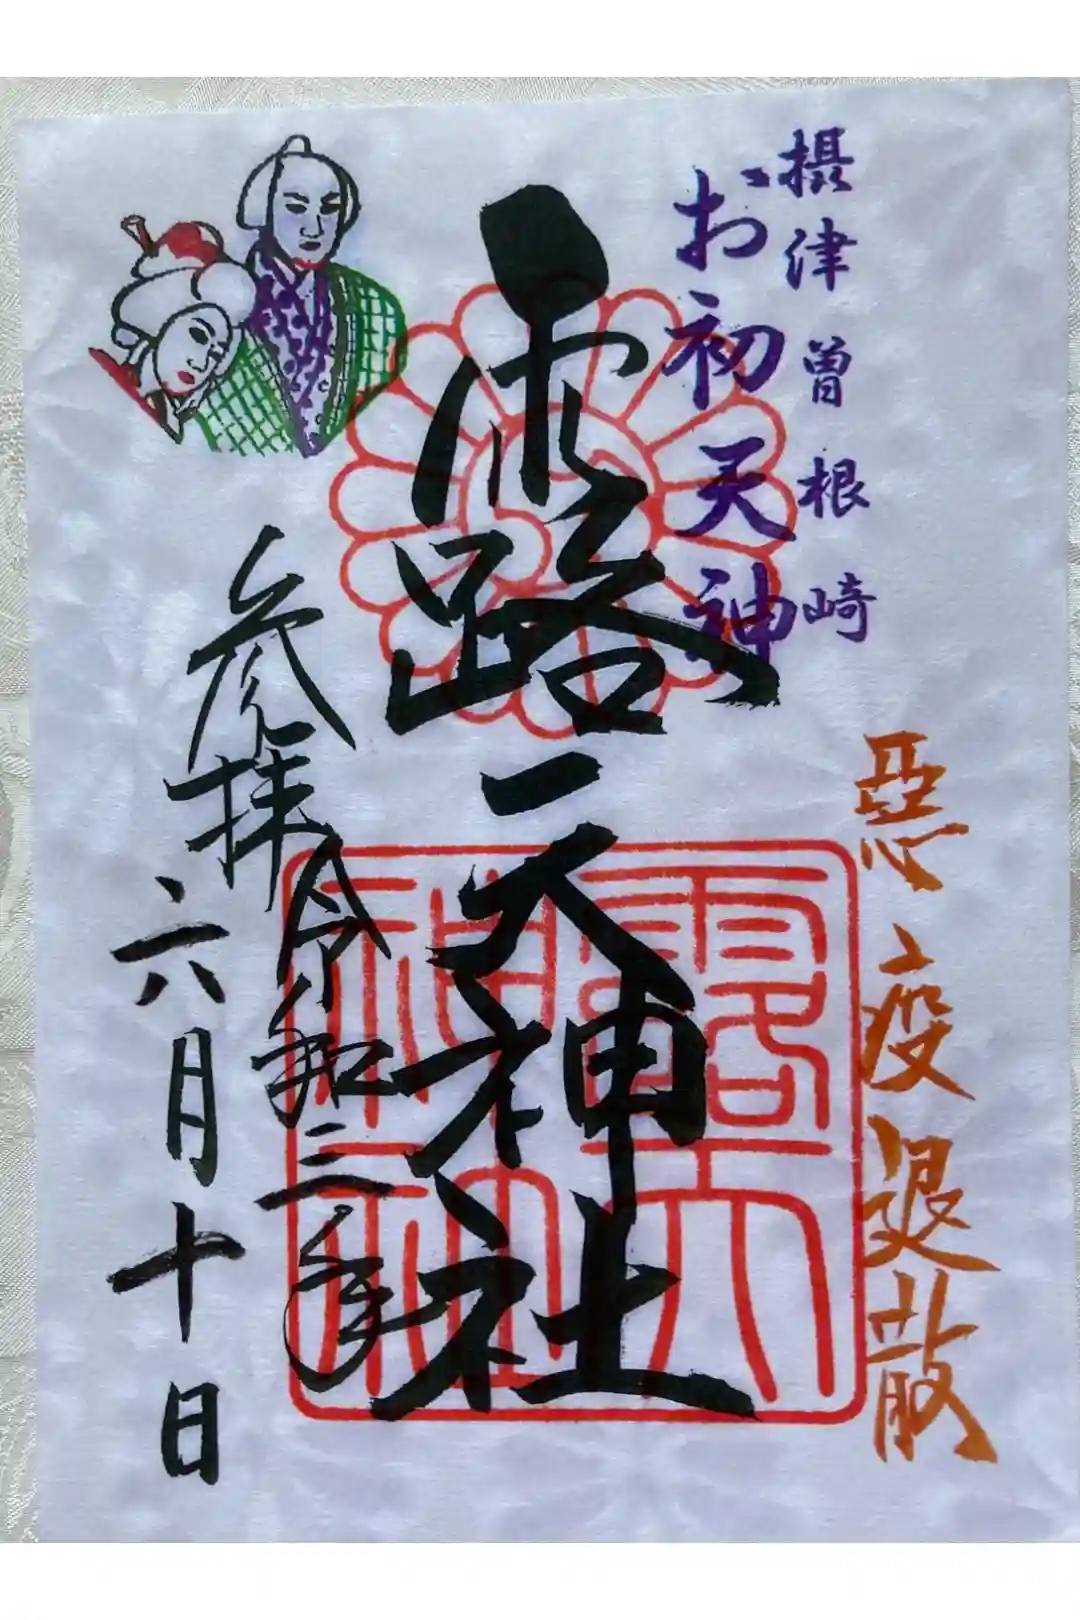 摂津曽根崎
お初天神
悪疫退散
露天神社
参拝令和三年
六月十日
露天神社